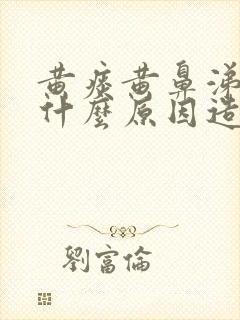 黄痰黄鼻涕
什麼原因造
劉富倫